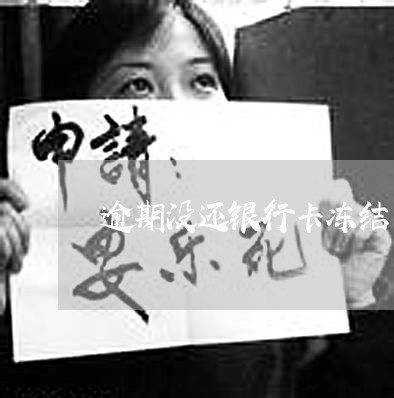 申請：
逾期没还银行卡冻结
安乐死